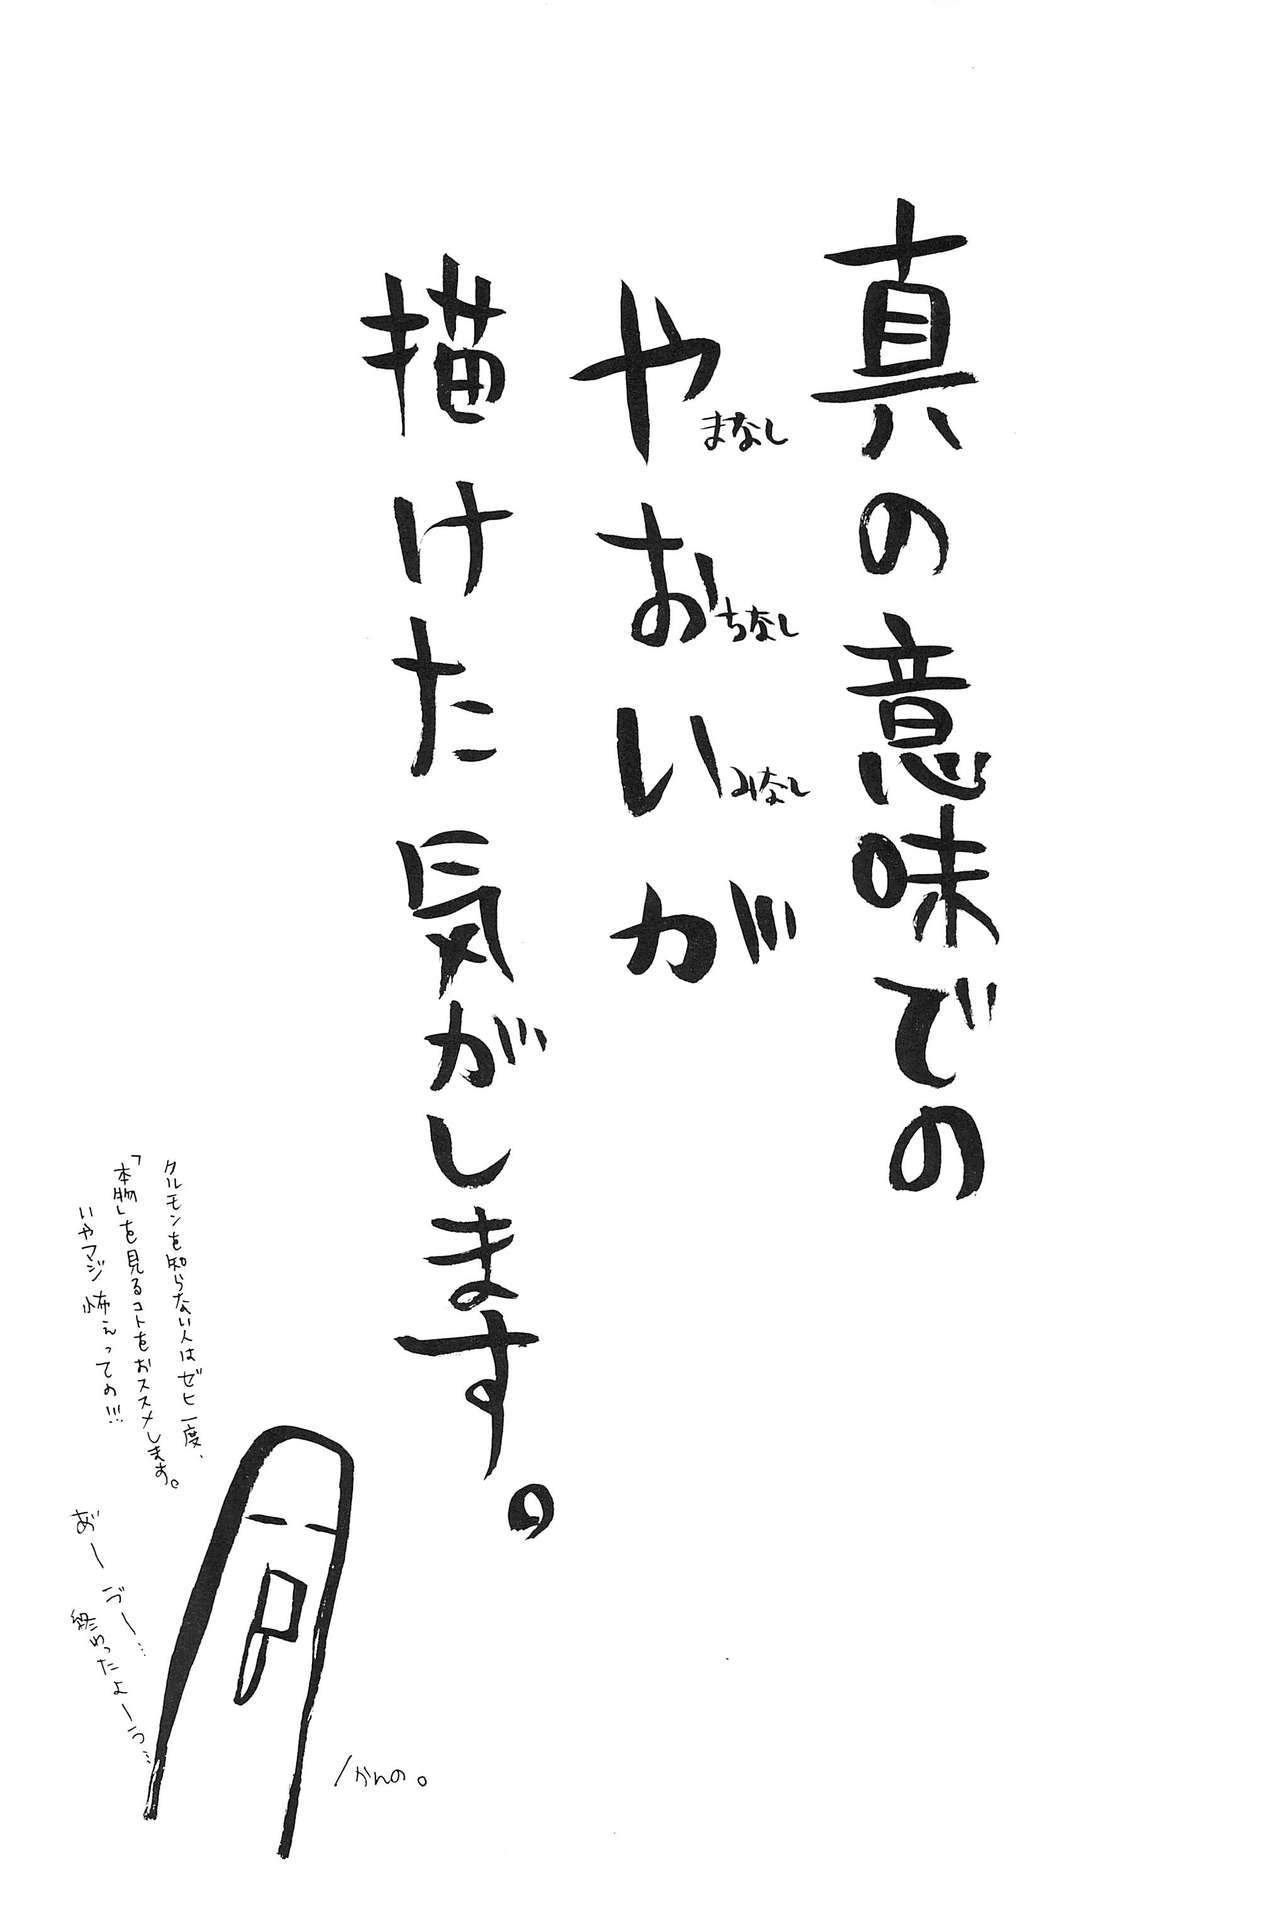 真の意味での
やまなし
おちなし
いみなしが
描けた気がします。
クルモンを知らない人はゼヒ一度、
「本物」を見るコトをおススメします。
いやマジ怖えっての!!!
あ゛ー ゔー…
終わったよーう…
/かんの。